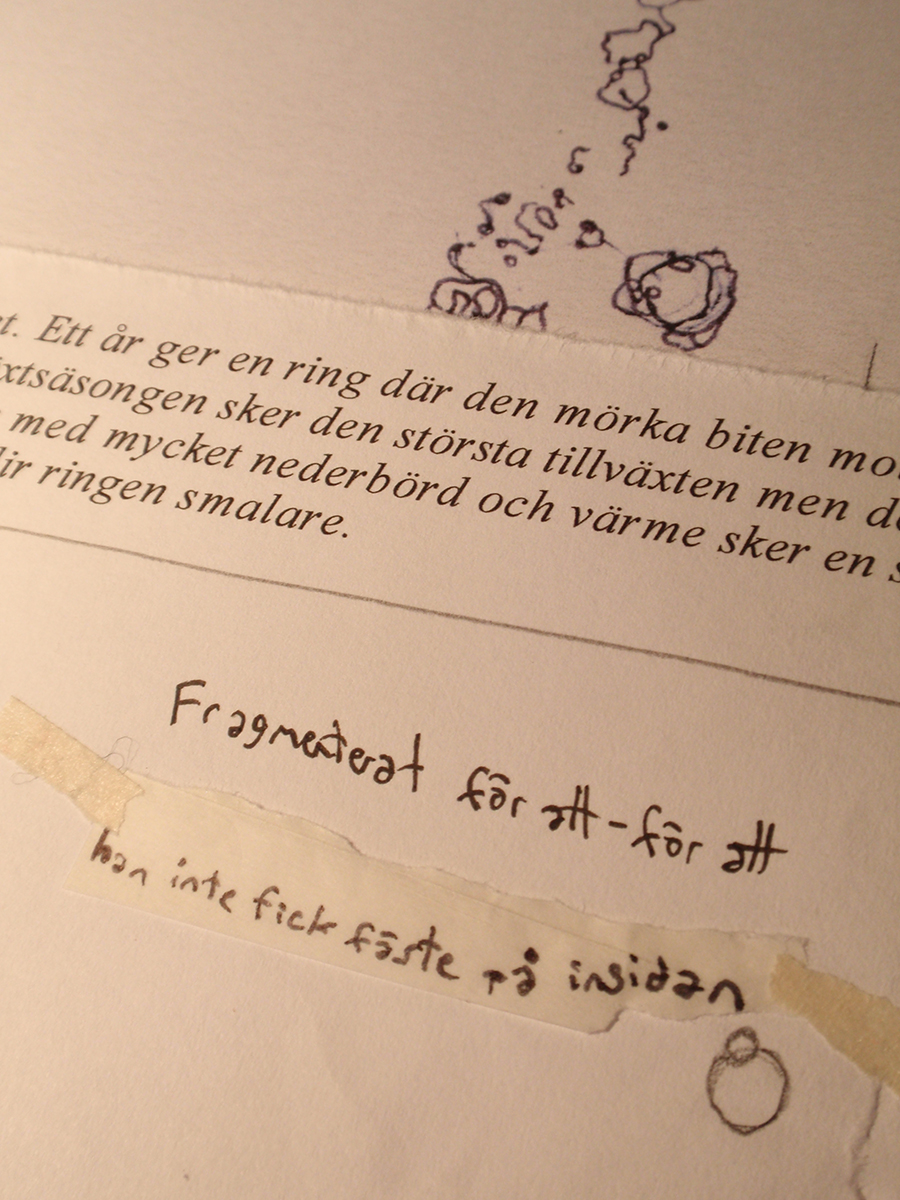 t. Ett år ger en ring där den mörka biten mo
xtsäsongen sker den största tillväxten men d
med mycket nederbörd och värme sker en s
lir ringen smalare.
Fragmenterat för att-för att
han inte fick fäste på insidan